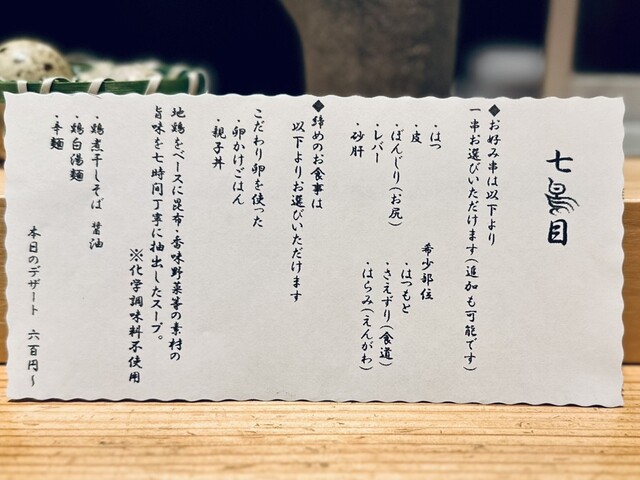 七鳥目
◆お好み串は以下より
一串お選びいただけます(追加も可能です)
・はつ
・皮
・ぼんじり(お尻)
・レバー
・砂肝
希少部位
・はつもと
・さえずり(食道)
・はらみ(えんがわ)
◆締めのお食事は
以下よりお選びいただけます
こだわり卵を使った
・卵かけごはん
・親子丼
地鶏をベースに昆布・香味野菜等の素材の
旨味を七時間丁寧に抽出したスープ。
※化学調味料不使用
・鶏煮干しそば 醤油
・鶏白湯麺
・辛麺
本日のデザート 六百円~